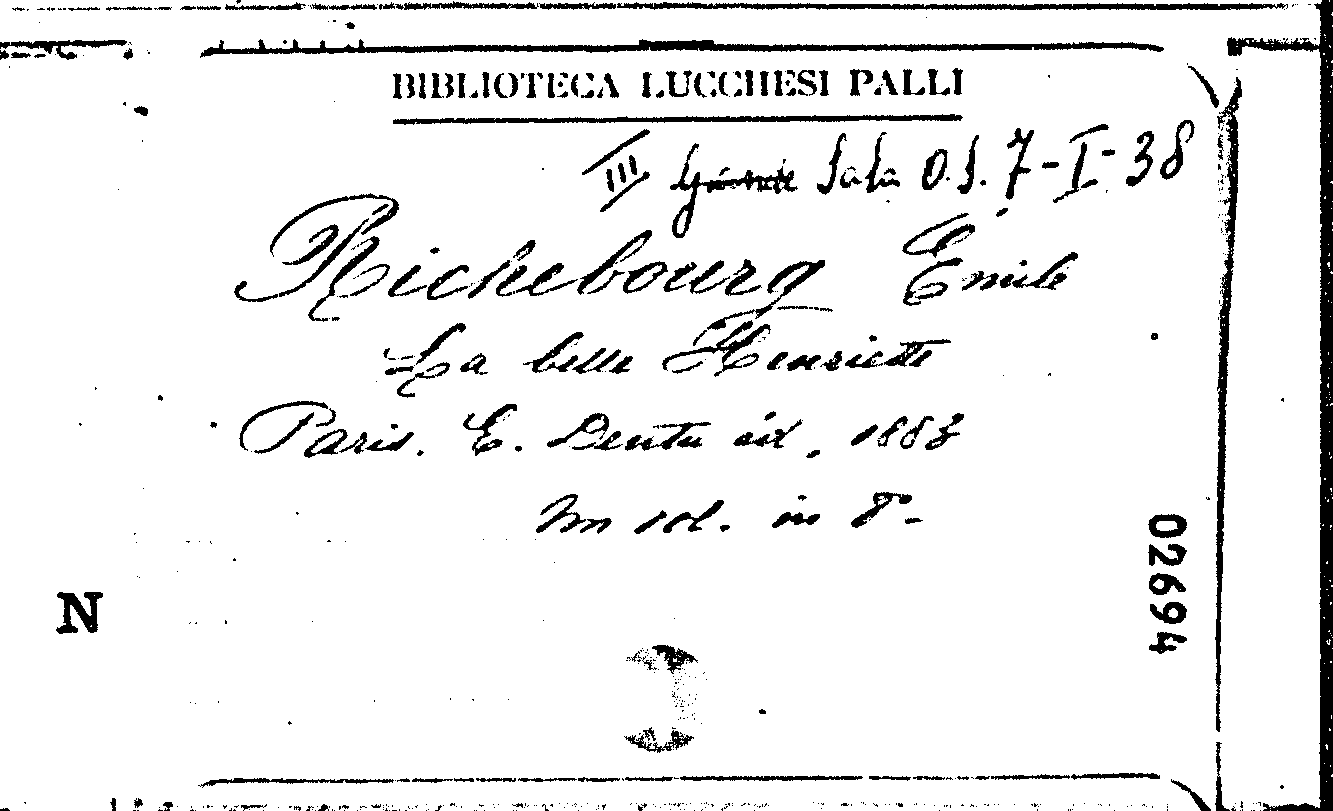 BIBLIOTECA LUCCHESI PALLI
III Sala O.S. 7-I-38
Richebourg Émile
La belle Henriette
Paris. E. Dentu éd, 1883
Un vol. in 8°-
02694
N